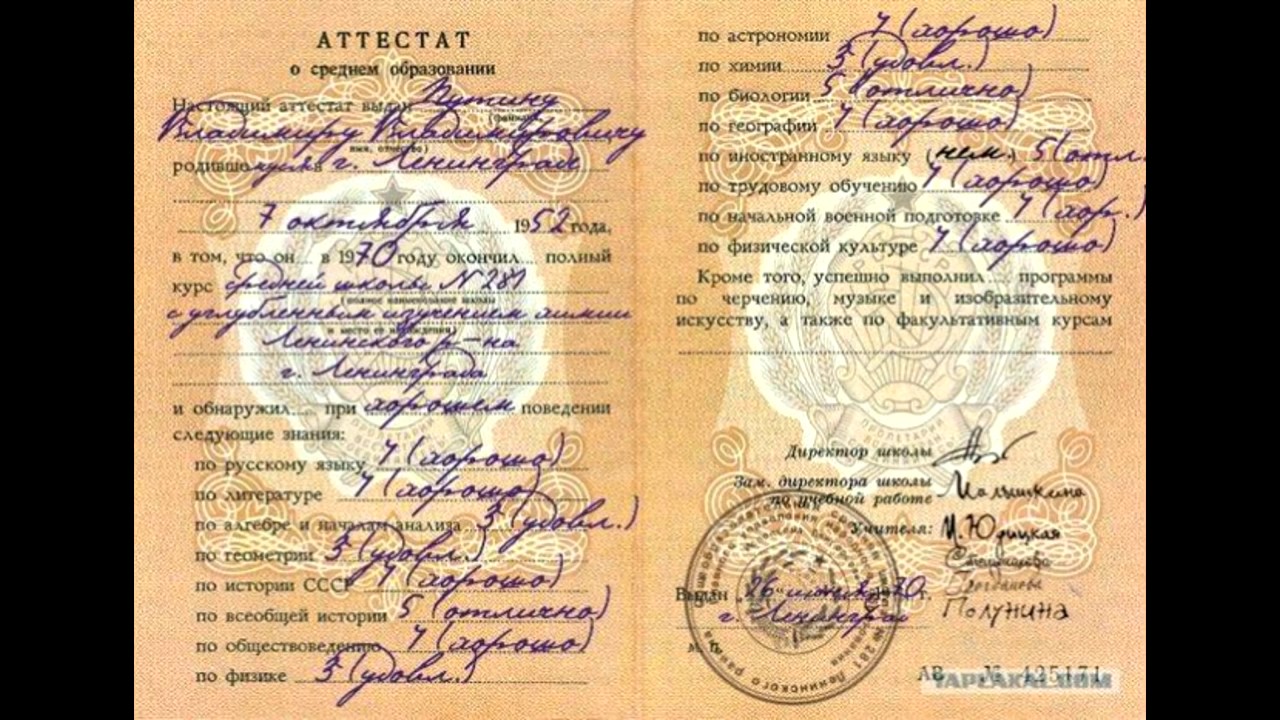 АТТЕСТАТ
о среднем образовании
Настоящий аттестат выдан Путину
(фамилия,
Владимиру Владимировичу
имя, отчество)
родившемуся в г. Ленинграде
7 октября 1952 года,
в том, что он в 1970 году окончил полный
курс средней школы № 281
(полное наименование школы
с углубленным изучением химии
и место ее нахождения)
Ленинского р-на
г. Ленинграда
и обнаружил при хорошем поведении
следующие знания:
по русскому языку 4 (хорошо)
по литературе 4 (хорошо)
по алгебре и началам анализа 3 (удовл.)
по геометрии 3 (удовл.)
по истории СССР 4 (хорошо)
по всеобщей истории 5 (отлично)
по обществоведению 4 (хорошо)
по физике 3 (удовл.)
по астрономии 4 (хорошо)
по химии 3 (удовл.)
по биологии 5 (отлично)
по географии 4 (хорошо)
по иностранному языку (нем.) 5 (отл.
по трудовому обучению 4 (хорошо)
по начальной военной подготовке 4 (хор.)
по физической культуре 4 (хорошо)
Кроме того, успешно выполнил программы
по черчению, музыке и изобразительному
искусству, а также по факультативным курсам
Директор школы
Зам. директора школы
по учебной работе Малышкина
Учителя: М. Юдицкая
Богданова
Полунина
Выдан „26" июня 1970 г.
г. Ленинград
М. П.
№ 281 Ленинского района
АВ № 425171
YAPLAKAL.COM